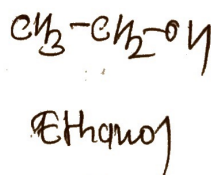 CH₃-CH₂-OH
Ethanol